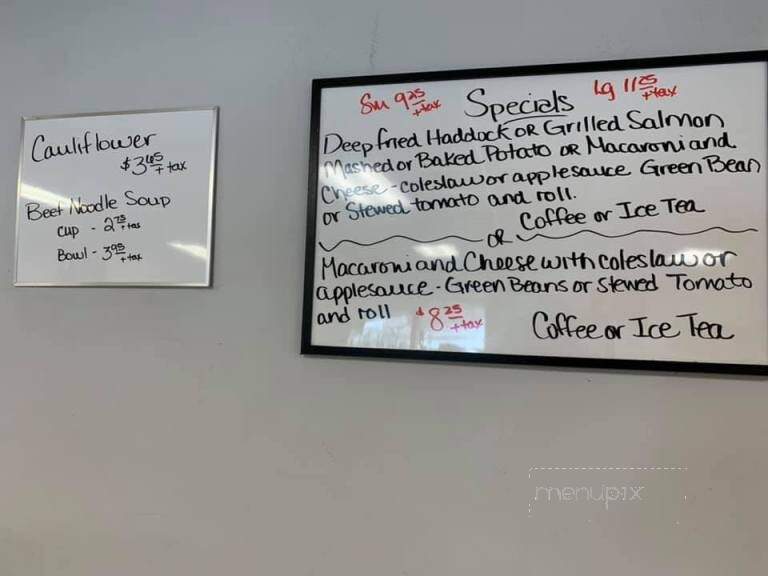 Cauliflower
$3.65 + tax
Beef Noodle Soup
Cup - 2.75 + tax
Bowl - 3.95 + tax
Sm 9.25 + tax Specials Lg 11.25 + tax
Deep fried Haddock OR Grilled Salmon
Mashed or Baked Potato OR Macaroni and
Cheese - coleslaw or applesauce Green Bean
or Stewed tomato and roll.
Coffee or Ice Tea
OR
Macaroni and Cheese with coleslaw or
applesauce - Green Beans or Stewed Tomato
and roll $8.25 + tax
Coffee or Ice Tea
menupix